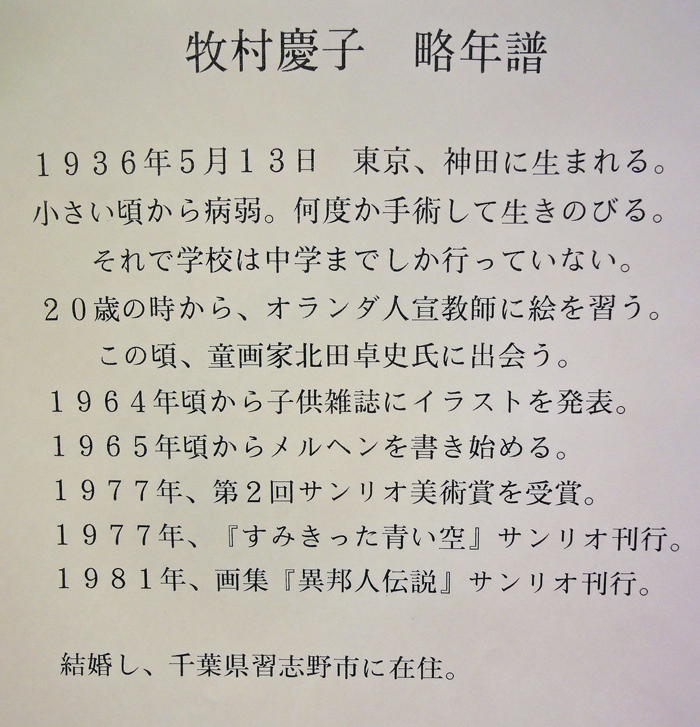 牧村慶子　略年譜
１９３６年５月１３日　東京、神田に生まれる。
小さい頃から病弱。何度か手術して生きのびる。
それで学校は中学までしか行っていない。
２０歳の時から、オランダ人宣教師に絵を習う。
この頃、童画家北田卓史氏に出会う。
１９６４年頃から子供雑誌にイラストを発表。
１９６５年頃からメルヘンを書き始める。
１９７７年、第２回サンリオ美術賞を受賞。
１９７７年、『すみきった青い空』サンリオ刊行。
１９８１年、画集『異邦人伝説』サンリオ刊行。
結婚し、千葉県習志野市に在住。